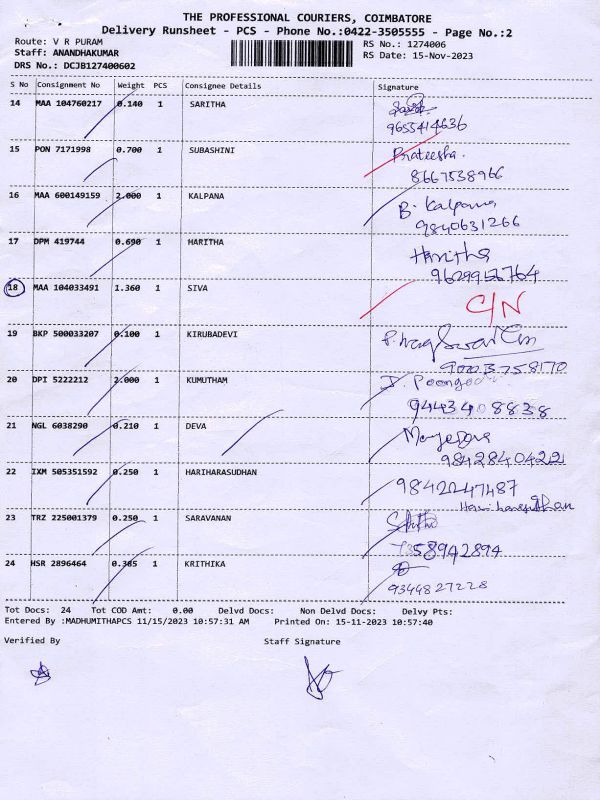 THE PROFESSIONAL COURIERS, COIMBATORE
Delivery Runsheet - PCS - Phone No.:0422-3505555 - Page No.:2
Route: V R PURAM
RS No.: 1274006
Staff: ANANDHAKUMAR
RS Date: 15-Nov-2023
DRS No.: DCJB127400602
S No Consignment No Weight PCS Consignee Details Signature
14 MAA 104760217 0.140 1 SARITHA
9655414636
15 PON 7171998 0.700 1 SUBASHINI Prateesha.
8667538966
16 MAA 600149159 2.000 1 KALPANA B. Kalpana
9840631266
17 DPM 419744 0.690 1 HARITHA Haritha
9629956764
18 MAA 104033491 1.360 1 SIVA C/N
19 BKP 500033207 0.100 1 KIRUBADEVI
20 DPI 5222212 2.000 1 KUMUTHAM
9443408838
21 NGL 6038290 0.210 1 DEVA
9842840422
22 IXM 505351592 0.250 1 HARIHARASUDHAN 9842247487
23 TRZ 225001379 0.250 1 SARAVANAN
24 HSR 2896464 0.385 1 KRITHIKA
9344827228
Tot Docs: 24 Tot COD Amt: 0.00 Delvd Docs: Non Delvd Docs: Delvy Pts:
Entered By :MADHUMITHAPCS 11/15/2023 10:57:31 AM Printed On: 15-11-2023 10:57:40
Verified By Staff Signature